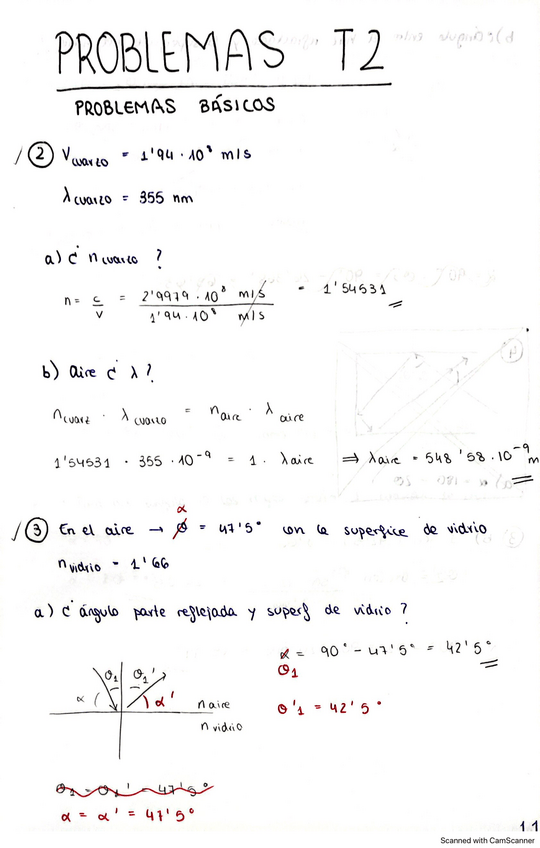 PROBLEMAS T2
PROBLEMAS BÁSICOS
② Vcuarzo = 1'94 · 10⁸ m/s
λcuarzo = 355 nm
a) ¿ ncuarzo ?
n = c/v = 2'9979 · 10⁸ m/s / 1'94 · 10⁸ m/s = 1'54531
b) Aire ¿ λ ?
ncuarz · λcuarzo = naire · λaire
1'54531 · 355 · 10⁻⁹ = 1 · λaire ⇒ λaire = 548'58 · 10⁻⁹ m
③ En el aire → α = 47'5° con la superfice de vidrio
nvidrio = 1'66
a) ¿ ángulo parte reflejada y superf de vidrio ?
α = 90° - 47'5° = 42'5°
θ1
θ1 θ1'
α α' naire
θ'1 = 42'5°
nvidrio
θ1 = θ1' = 47'5°
α = α' = 47'5°
1.1
Scanned with CamScanner